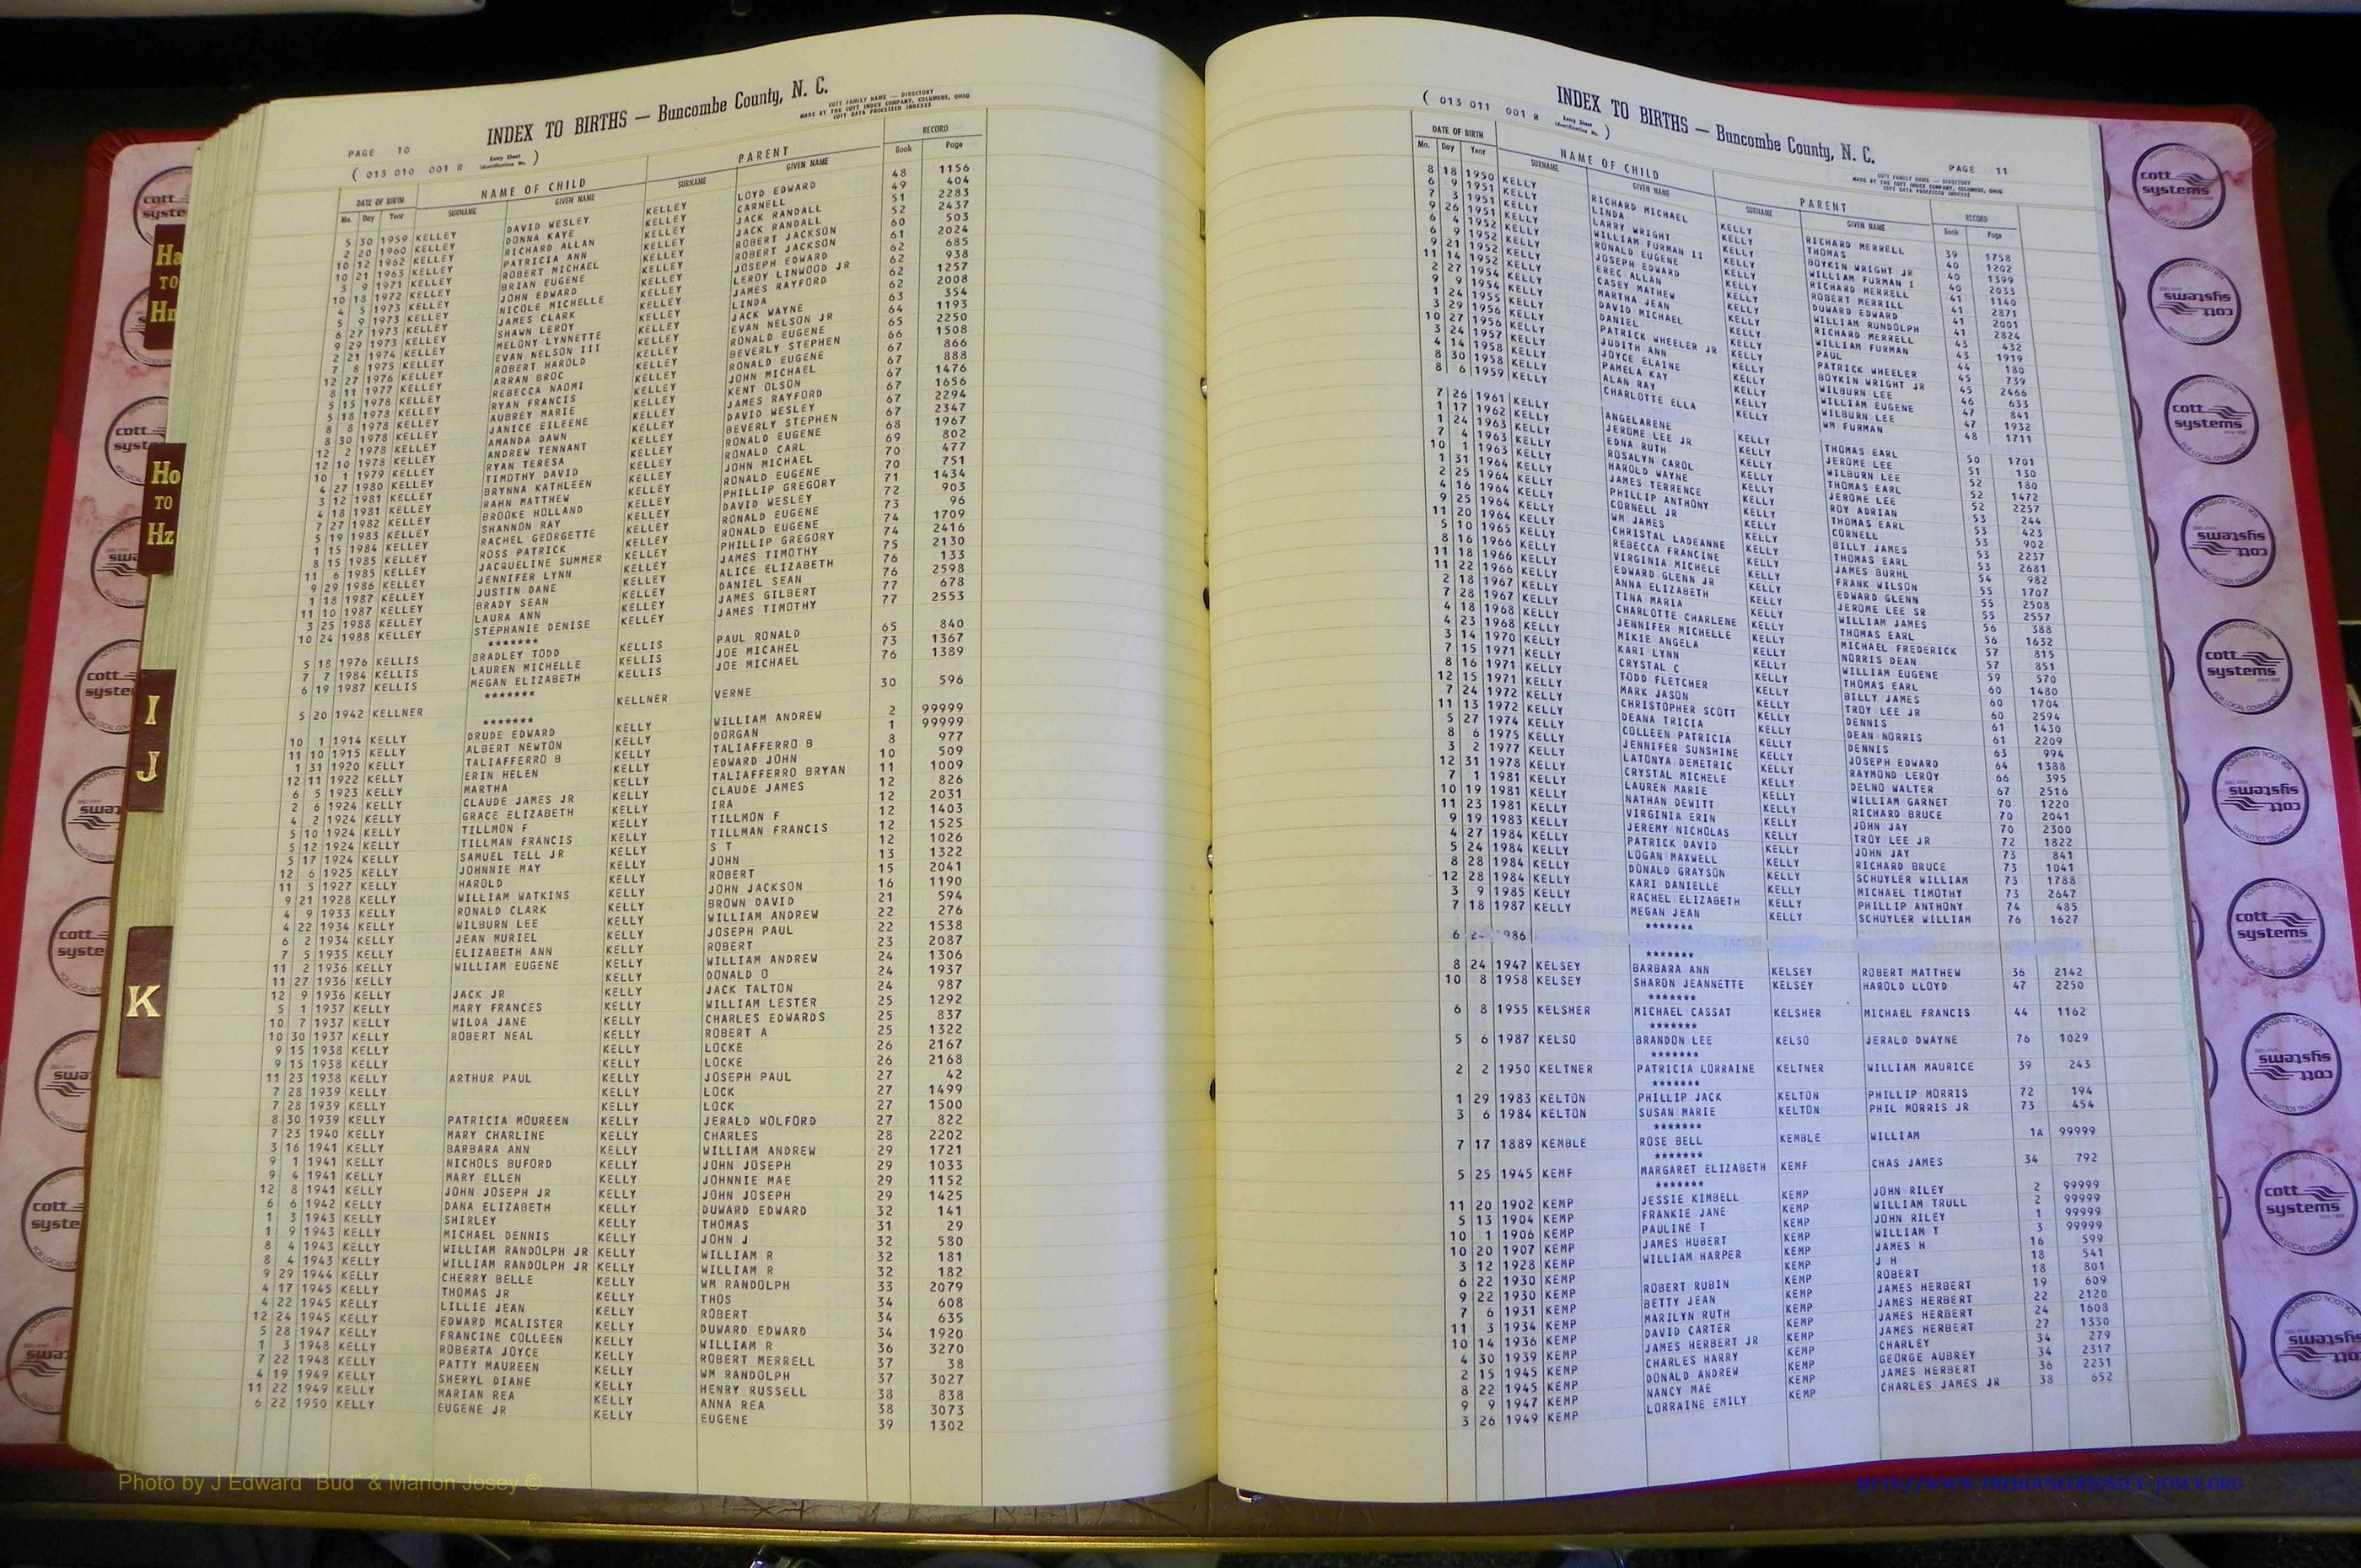 INDEX TO BIRTHS — Buncombe County, N. C.
COTT FAMILY NAME — DIRECTORY
MADE BY THE COTT INDEX COMPANY, COLUMBUS, OHIO
COTT DATA PROCESSED INDEXES
PAGE 10
( 013 010 001 R Entry Sheet Identification No. )
DATE OF BIRTH NAME OF CHILD PARENT RECORD
Mo. Day Year SURNAME GIVEN NAME SURNAME GIVEN NAME Book Page
5 30 1959 KELLEY DAVID WESLEY KELLEY LOYD EDWARD 48 1156
2 20 1960 KELLEY DONNA KAYE KELLEY CARNELL 49 404
10 12 1962 KELLEY RICHARD ALLAN KELLEY JACK RANDALL 51 2283
10 21 1963 KELLEY PATRICIA ANN KELLEY JACK RANDALL 52 2437
3 9 1971 KELLEY ROBERT MICHAEL KELLEY ROBERT JACKSON 60 503
10 18 1972 KELLEY BRIAN EUGENE KELLEY ROBERT JACKSON 61 2024
4 5 1973 KELLEY JOHN EDWARD KELLEY JOSEPH EDWARD 62 685
5 9 1973 KELLEY NICOLE MICHELLE KELLEY LEROY LINWOOD JR 62 938
6 27 1973 KELLEY JAMES CLARK KELLEY JAMES RAYFORD 62 1257
9 29 1973 KELLEY SHAWN LEROY KELLEY LINDA 62 2008
2 21 1974 KELLEY MELONY LYNNETTE KELLEY JACK WAYNE 63 354
7 8 1975 KELLEY EVAN NELSON III KELLEY EVAN NELSON JR 64 1193
12 27 1976 KELLEY ROBERT HAROLD KELLEY RONALD EUGENE 65 2250
8 11 1977 KELLEY ARRAN BROC KELLEY BEVERLY STEPHEN 66 1508
5 15 1978 KELLEY REBECCA NAOMI KELLEY RONALD EUGENE 67 866
5 18 1978 KELLEY RYAN FRANCIS KELLEY JOHN MICHAEL 67 888
8 8 1978 KELLEY AUBREY MARIE KELLEY KENT OLSON 67 1476
8 30 1978 KELLEY JANICE EILEENE KELLEY JAMES RAYFORD 67 1656
12 2 1978 KELLEY AMANDA DAWN KELLEY DAVID WESLEY 67 2294
12 10 1978 KELLEY ANDREW TENNANT KELLEY BEVERLY STEPHEN 67 2347
10 1 1979 KELLEY RYAN TERESA KELLEY RONALD EUGENE 68 1967
4 27 1980 KELLEY TIMOTHY DAVID KELLEY RONALD CARL 69 802
3 12 1981 KELLEY BRYNNA KATHLEEN KELLEY JOHN MICHAEL 70 477
4 18 1981 KELLEY RAHN MATTHEW KELLEY RONALD EUGENE 70 751
7 27 1982 KELLEY BROOKE HOLLAND KELLEY PHILLIP GREGORY 71 1434
5 19 1983 KELLEY SHANNON RAY KELLEY DAVID WESLEY 72 903
1 15 1984 KELLEY RACHEL GEORGETTE KELLEY RONALD EUGENE 73 96
8 15 1985 KELLEY ROSS PATRICK KELLEY RONALD EUGENE 74 1709
11 6 1985 KELLEY JACQUELINE SUMMER KELLEY PHILLIP GREGORY 74 2416
9 29 1986 KELLEY JENNIFER LYNN KELLEY JAMES TIMOTHY 75 2130
1 18 1987 KELLEY JUSTIN DANE KELLEY ALICE ELIZABETH 76 133
11 10 1987 KELLEY BRADY SEAN KELLEY DANIEL SEAN 76 2598
3 25 1988 KELLEY LAURA ANN KELLEY JAMES GILBERT 77 678
10 24 1988 KELLEY STEPHANIE DENISE KELLEY JAMES TIMOTHY 77 2553
*******
5 18 1976 KELLIS BRADLEY TODD KELLIS PAUL RONALD 65 840
7 7 1984 KELLIS LAUREN MICHELLE KELLIS JOE MICAHEL 73 1367
6 19 1987 KELLIS MEGAN ELIZABETH KELLIS JOE MICHAEL 76 1389
*******
5 20 1942 KELLNER KELLNER VERNE 30 596
*******
10 1 1914 KELLY DRUDE EDWARD KELLY WILLIAM ANDREW 2 99999
11 10 1915 KELLY ALBERT NEWTON KELLY DORGAN 1 99999
1 31 1920 KELLY TALIAFFERRO B KELLY TALIAFFERRO B 8 977
12 11 1922 KELLY ERIN HELEN KELLY EDWARD JOHN 10 509
6 5 1923 KELLY MARTHA KELLY TALIAFFERRO BRYAN 11 1009
2 6 1924 KELLY CLAUDE JAMES JR KELLY CLAUDE JAMES 12 826
4 2 1924 KELLY GRACE ELIZABETH KELLY IRA 12 2031
5 10 1924 KELLY TILLMON F KELLY TILLMON F 12 1403
5 12 1924 KELLY TILLMAN FRANCIS KELLY TILLMAN FRANCIS 12 1525
5 17 1924 KELLY SAMUEL TELL JR KELLY S T 12 1026
12 6 1925 KELLY JOHNNIE MAY KELLY JOHN 13 1322
11 5 1927 KELLY HAROLD KELLY ROBERT 15 2041
9 21 1928 KELLY WILLIAM WATKINS KELLY JOHN JACKSON 16 1190
4 9 1933 KELLY RONALD CLARK KELLY BROWN DAVID 21 594
4 22 1934 KELLY WILBURN LEE KELLY WILLIAM ANDREW 22 276
6 2 1934 KELLY JEAN MURIEL KELLY JOSEPH PAUL 22 1538
7 5 1935 KELLY ELIZABETH ANN KELLY ROBERT 23 2087
11 2 1936 KELLY WILLIAM EUGENE KELLY WILLIAM ANDREW 24 1306
11 27 1936 KELLY KELLY DONALD O 24 1937
12 9 1936 KELLY JACK JR KELLY JACK TALTON 24 987
5 1 1937 KELLY MARY FRANCES KELLY WILLIAM LESTER 25 1292
10 7 1937 KELLY WILDA JANE KELLY CHARLES EDWARDS 25 837
10 30 1937 KELLY ROBERT NEAL KELLY ROBERT A 25 1322
9 15 1938 KELLY KELLY LOCKE 26 2167
9 15 1938 KELLY KELLY LOCKE 26 2168
11 23 1938 KELLY ARTHUR PAUL KELLY JOSEPH PAUL 27 42
7 28 1939 KELLY KELLY LOCK 27 1499
7 28 1939 KELLY KELLY LOCK 27 1500
8 30 1939 KELLY PATRICIA MOUREEN KELLY JERALD WOLFORD 27 822
7 23 1940 KELLY MARY CHARLINE KELLY CHARLES 28 2202
3 16 1941 KELLY BARBARA ANN KELLY WILLIAM ANDREW 29 1721
9 1 1941 KELLY NICHOLS BUFORD KELLY JOHN JOSEPH 29 1033
9 4 1941 KELLY MARY ELLEN KELLY JOHNNIE MAE 29 1152
12 8 1941 KELLY JOHN JOSEPH JR KELLY JOHN JOSEPH 29 1425
6 6 1942 KELLY DANA ELIZABETH KELLY DUWARD EDWARD 32 141
1 3 1943 KELLY SHIRLEY KELLY THOMAS 31 29
1 9 1943 KELLY MICHAEL DENNIS KELLY JOHN J 32 580
8 4 1943 KELLY WILLIAM RANDOLPH JR KELLY WILLIAM R 32 181
8 4 1943 KELLY WILLIAM RANDOLPH JR KELLY WILLIAM R 32 182
9 29 1944 KELLY CHERRY BELLE KELLY WM RANDOLPH 33 2079
4 17 1945 KELLY THOMAS JR KELLY THOS 34 608
4 22 1945 KELLY LILLIE JEAN KELLY ROBERT 34 635
12 24 1945 KELLY EDWARD MCALISTER KELLY DUWARD EDWARD 34 1920
5 28 1947 KELLY FRANCINE COLLEEN KELLY WILLIAM R 36 3270
1 3 1948 KELLY ROBERTA JOYCE KELLY ROBERT MERRELL 37 38
7 22 1948 KELLY PATTY MAUREEN KELLY WM RANDOLPH 37 3027
4 19 1949 KELLY SHERYL DIANE KELLY HENRY RUSSELL 38 838
11 22 1949 KELLY MARIAN REA KELLY ANNA REA 38 3073
6 22 1950 KELLY EUGENE JR KELLY EUGENE 39 1302
INDEX TO BIRTHS — Buncombe County, N. C.
COTT FAMILY NAME — DIRECTORY
MADE BY THE COTT INDEX COMPANY, COLUMBUS, OHIO
COTT DATA PROCESSED INDEXES
PAGE 11
( 013 011 001 R Entry Sheet Identification No. )
DATE OF BIRTH NAME OF CHILD PARENT RECORD
Mo. Day Year SURNAME GIVEN NAME SURNAME GIVEN NAME Book Page
8 18 1950 KELLY RICHARD MICHAEL KELLY RICHARD MERRELL 39 1758
6 9 1951 KELLY LINDA KELLY THOMAS 40 1202
7 3 1951 KELLY LARRY WRIGHT KELLY BOYKIN WRIGHT JR 40 1399
9 26 1951 KELLY WILLIAM FURMAN II KELLY WILLIAM FURMAN I 40 2033
6 4 1952 KELLY RONALD EUGENE KELLY RICHARD MERRELL 41 1140
6 9 1952 KELLY JOSEPH EDWARD KELLY ROBERT MERRILL 41 2871
9 21 1952 KELLY EREC ALLAN KELLY DUWARD EDWARD 41 2001
11 14 1952 KELLY CASEY MATHEW KELLY WILLIAM RUNDOLPH 41 2824
2 27 1954 KELLY MARTHA JEAN KELLY RICHARD MERRELL 43 432
9 9 1954 KELLY DAVID MICHAEL KELLY WILLIAM FURMAN 43 1919
1 24 1955 KELLY DANIEL KELLY PAUL 44 180
3 29 1956 KELLY PATRICK WHEELER JR KELLY PATRICK WHEELER 45 739
10 27 1956 KELLY JUDITH ANN KELLY BOYKIN WRIGHT JR 45 2466
3 24 1957 KELLY JOYCE ELAINE KELLY WILBURN LEE 46 633
4 14 1958 KELLY PAMELA KAY KELLY WILLIAM EUGENE 47 841
8 30 1958 KELLY ALAN RAY KELLY WILBURN LEE 47 1932
8 6 1959 KELLY CHARLOTTE ELLA KELLY WM FURMAN 48 1711
7 26 1961 KELLY ANGELARENE KELLY THOMAS EARL 50 1701
1 17 1962 KELLY JEROME LEE JR KELLY JEROME LEE 51 130
1 24 1963 KELLY EDNA RUTH KELLY WILBURN LEE 52 180
7 4 1963 KELLY ROSALYN CAROL KELLY THOMAS EARL 52 1472
10 1 1963 KELLY HAROLD WAYNE KELLY JEROME LEE 52 2257
1 31 1964 KELLY JAMES TERRENCE KELLY ROY ADRIAN 53 244
2 25 1964 KELLY PHILLIP ANTHONY KELLY THOMAS EARL 53 423
4 16 1964 KELLY CORNELL JR KELLY CORNELL 53 902
9 25 1964 KELLY WM JAMES KELLY BILLY JAMES 53 2237
11 20 1964 KELLY CHRISTAL LADEANNE KELLY THOMAS EARL 53 2681
5 10 1965 KELLY REBECCA FRANCINE KELLY JAMES BURHL 54 982
8 16 1966 KELLY VIRGINIA MICHELE KELLY FRANK WILSON 55 1707
11 18 1966 KELLY EDWARD GLENN JR KELLY EDWARD GLENN 55 2508
11 22 1966 KELLY ANNA ELIZABETH KELLY JEROME LEE SR 55 2557
2 18 1967 KELLY TINA MARIA KELLY WILLIAM JAMES 56 388
7 28 1967 KELLY CHARLOTTE CHARLENE KELLY THOMAS EARL 56 1632
4 18 1968 KELLY JENNIFER MICHELLE KELLY MICHAEL FREDERICK 57 815
4 23 1968 KELLY MIKIE ANGELA KELLY NORRIS DEAN 57 851
3 14 1970 KELLY KARI LYNN KELLY WILLIAM EUGENE 59 570
7 15 1971 KELLY CRYSTAL C KELLY THOMAS EARL 60 1480
8 16 1971 KELLY TODD FLETCHER KELLY BILLY JAMES 60 1704
12 15 1971 KELLY MARK JASON KELLY TROY LEE JR 60 2594
7 24 1972 KELLY CHRISTOPHER SCOTT KELLY DENNIS 61 1430
11 13 1972 KELLY DEANA TRICIA KELLY DEAN NORRIS 61 2209
5 27 1974 KELLY COLLEEN PATRICIA KELLY DENNIS 63 994
8 6 1975 KELLY JENNIFER SUNSHINE KELLY JOSEPH EDWARD 64 1388
3 2 1977 KELLY LATONYA DEMETRIC KELLY RAYMOND LEROY 66 395
12 31 1978 KELLY CRYSTAL MICHELE KELLY DELNO WALTER 67 2516
7 1 1981 KELLY LAUREN MARIE KELLY WILLIAM GARNET 70 1220
10 19 1981 KELLY NATHAN DEWITT KELLY RICHARD BRUCE 70 2041
11 23 1981 KELLY VIRGINIA ERIN KELLY JOHN JAY 70 2300
9 19 1983 KELLY JEREMY NICHOLAS KELLY TROY LEE JR 72 1822
4 27 1984 KELLY PATRICK DAVID KELLY JOHN JAY 73 841
5 24 1984 KELLY LOGAN MAXWELL KELLY RICHARD BRUCE 73 1041
8 28 1984 KELLY DONALD GRAYSON KELLY SCHUYLER WILLIAM 73 1788
12 28 1984 KELLY KARI DANIELLE KELLY MICHAEL TIMOTHY 73 2647
3 9 1985 KELLY RACHEL ELIZABETH KELLY PHILLIP ANTHONY 74 485
7 18 1987 KELLY MEGAN JEAN KELLY SCHUYLER WILLIAM 76 1627
*******
6 986
*******
8 24 1947 KELSEY BARBARA ANN KELSEY ROBERT MATTHEW 36 2142
10 8 1958 KELSEY SHARON JEANNETTE KELSEY HAROLD LLOYD 47 2250
*******
6 8 1955 KELSHER MICHAEL CASSAT KELSHER MICHAEL FRANCIS 44 1162
*******
5 6 1987 KELSO BRANDON LEE KELSO JERALD DWAYNE 76 1029
*******
2 2 1950 KELTNER PATRICIA LORRAINE KELTNER WILLIAM MAURICE 39 243
*******
1 29 1983 KELTON PHILLIP JACK KELTON PHILLIP MORRIS 72 194
3 6 1984 KELTON SUSAN MARIE KELTON PHIL MORRIS JR 73 454
*******
7 17 1889 KEMBLE ROSE BELL KEMBLE WILLIAM 1A 99999
*******
5 25 1945 KEMF MARGARET ELIZABETH KEMF CHAS JAMES 34 792
*******
11 20 1902 KEMP JESSIE KIMBELL KEMP JOHN RILEY 2 99999
5 13 1904 KEMP FRANKIE JANE KEMP WILLIAM TRULL 2 99999
10 1 1906 KEMP PAULINE T KEMP JOHN RILEY 1 99999
10 20 1907 KEMP JAMES HUBERT KEMP WILLIAM T 3 99999
3 12 1928 KEMP WILLIAM HARPER KEMP JAMES H 16 599
6 22 1930 KEMP KEMP J H 18 541
9 22 1930 KEMP ROBERT RUBIN KEMP ROBERT 18 801
7 6 1931 KEMP BETTY JEAN KEMP JAMES HERBERT 19 609
11 3 1934 KEMP MARILYN RUTH KEMP JAMES HERBERT 22 2120
10 14 1936 KEMP DAVID CARTER KEMP JAMES HERBERT 24 1608
4 30 1939 KEMP JAMES HERBERT JR KEMP JAMES HERBERT 27 1330
2 15 1945 KEMP CHARLES HARRY KEMP CHARLEY 34 279
8 22 1945 KEMP DONALD ANDREW KEMP GEORGE AUBREY 34 2317
9 9 1947 KEMP NANCY MAE KEMP JAMES HERBERT 36 2231
3 26 1949 KEMP LORRAINE EMILY KEMP CHARLES JAMES JR 38 652
Ho
TO
Hz
I
J
K
cott systems
Photo by J Edward "Bud" & Marion Josey ©
HTTP://WWW.THEHOUSEOFJOSSEY-JOSEY.ORG